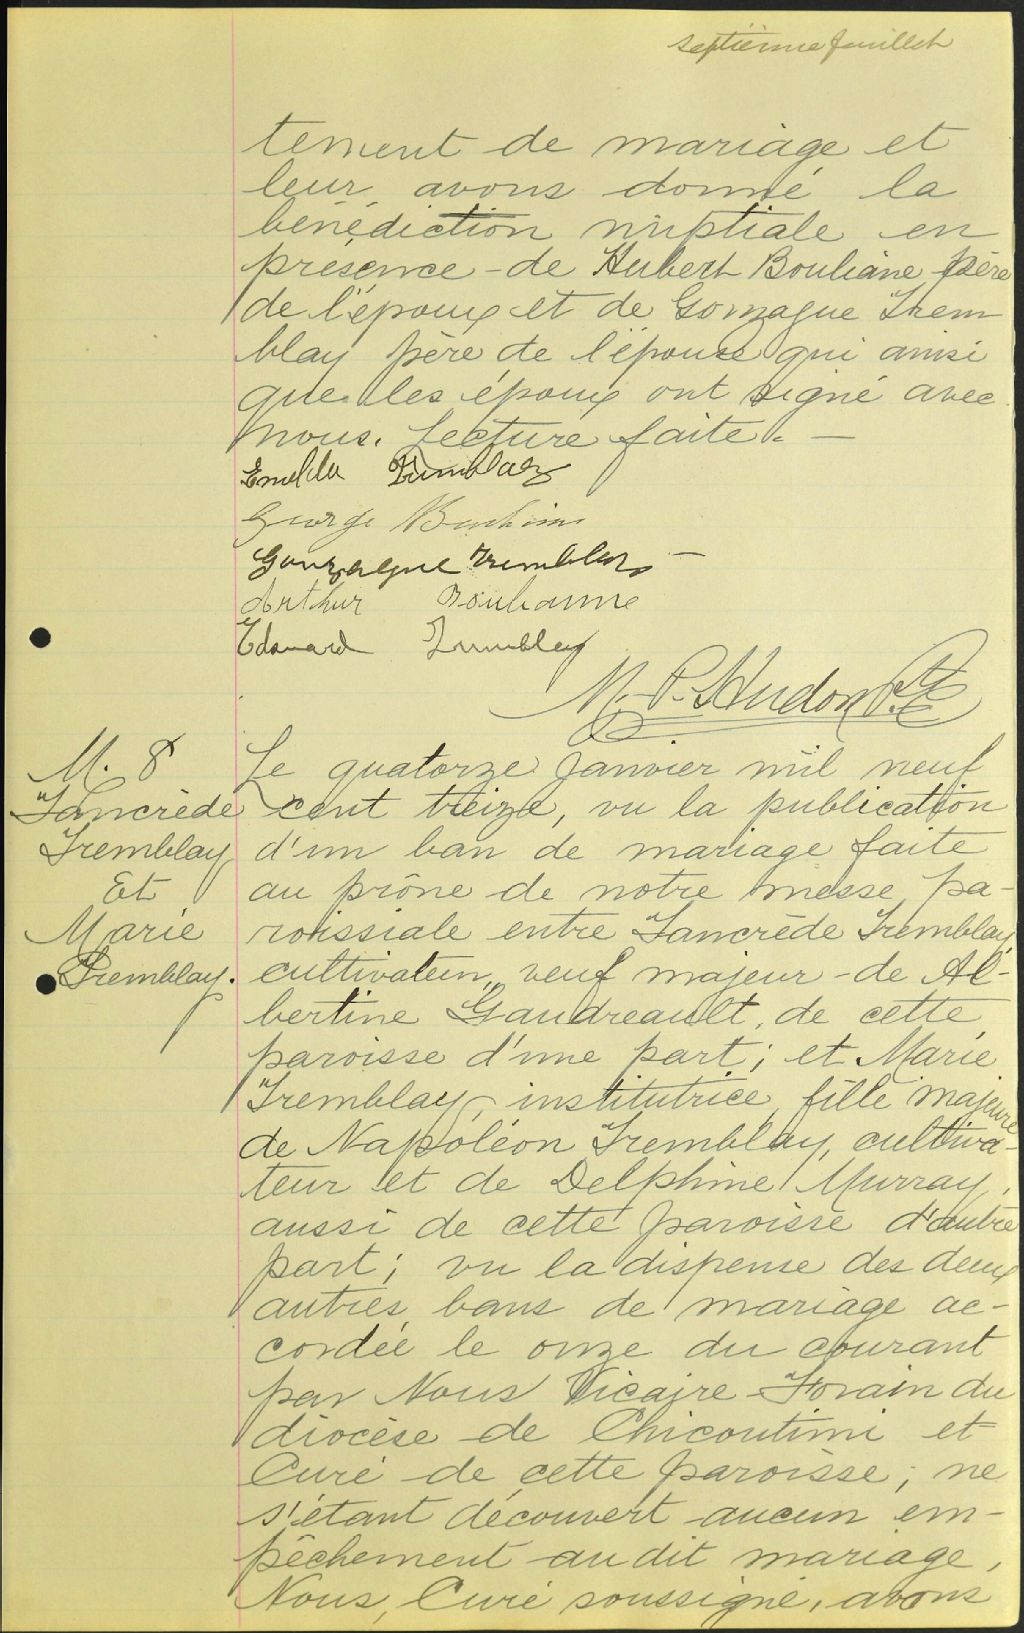 septième feuillet
tement de mariage et
leur avons donné la
bénédiction nuptiale en
présence de Hubert Bouliane père
de l'époux et de Gonzague Trem
blay père de l'épouse qui ainsi
que les époux ont signé avec
nous. Lecture faite. —
Emelda Tremblay
George
Gonzague Tremblay —
Arthur Boulianne
Edouard Tremblay
M. P. Hudon Ptre
M. 8
Tancrède
Tremblay
Et
Marie
Tremblay.
Le quatorze janvier mil neuf
cent treize, vu la publication
d'un ban de mariage faite
au prône de notre messe pa-
roissiale entre Tancrède Tremblay,
cultivateur, veuf majeur de Al-
bertine Gaudreault, de cette
paroisse d'une part; et Marie
Tremblay, institutrice, fille majeure
de Napoléon Tremblay, cultiva-
teur et de Delphine Murray,
aussi de cette paroisse d'autre
part; vu la dispense des deux
autres bans de mariage ac-
cordée le onze du courant
par Nous Vicaire Forain du
diocèse de Chicoutimi et
Curé de cette paroisse; ne
s'étant découvert aucun em-
pêchement au dit mariage,
Nous, Curé soussigné, avons